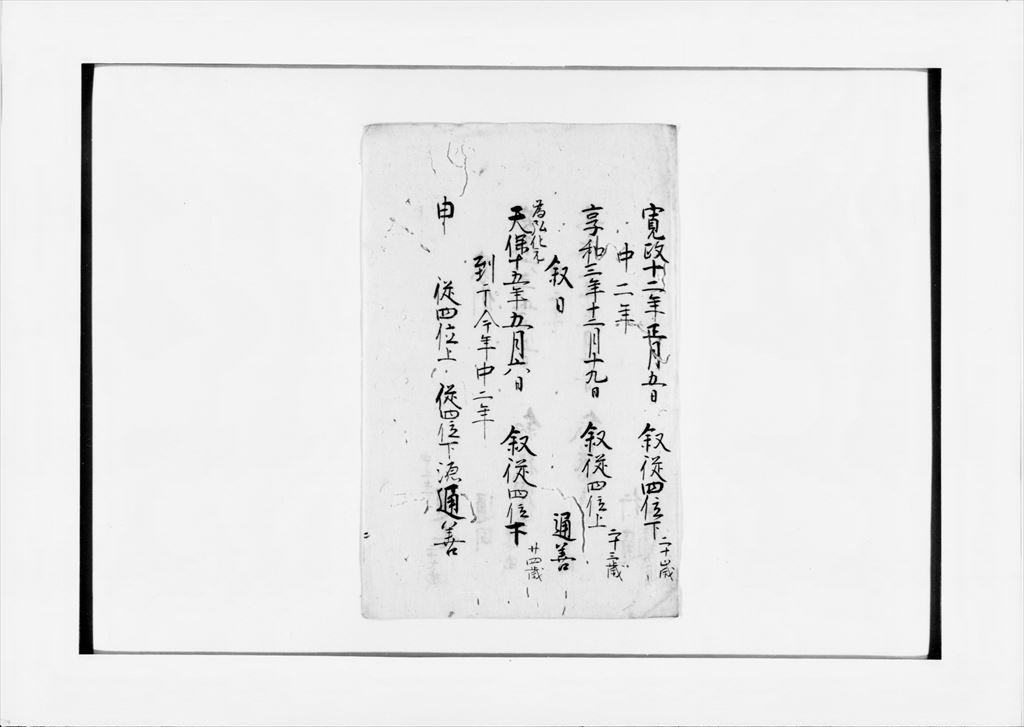 寛政十二年正月五日 叙従四位下 二十歳
中二年
享和三年十二月十九日 叙従四位上 二十三歳
叙日 通善
為弘化元
天保十五年五月六日 叙従四位下 廿四歳
到于今年中二年
申 従四位上 従四位下源通善